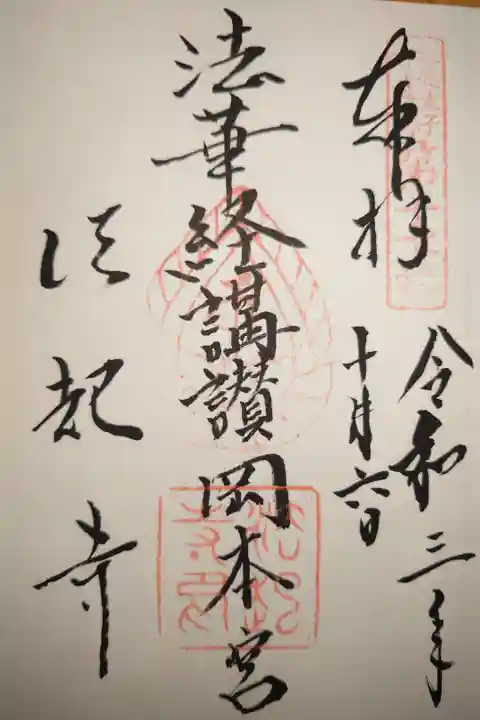 奉拝
令和三年
十月六日
法華経講讃岡本宮
法起寺